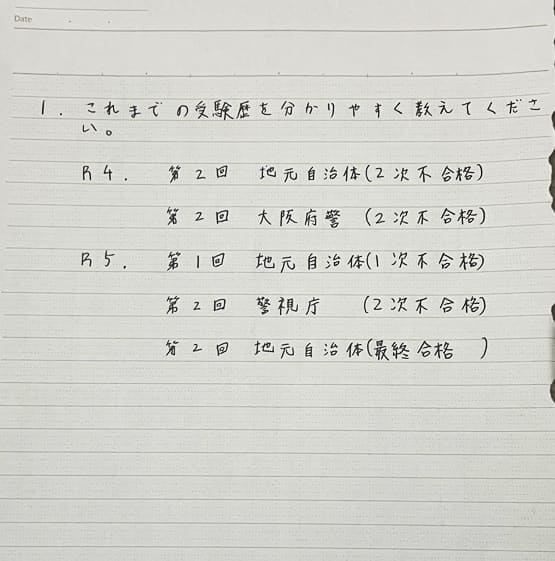 Date . .
1. これまでの受験歴を分かりやすく教えてくださ
い。
R4. 第2回 地元自治体(2次不合格)
第2回 大阪府警 (2次不合格)
R5. 第1回 地元自治体(1次不合格)
第2回 警視庁 (2次不合格)
第2回 地元自治体(最終合格 )